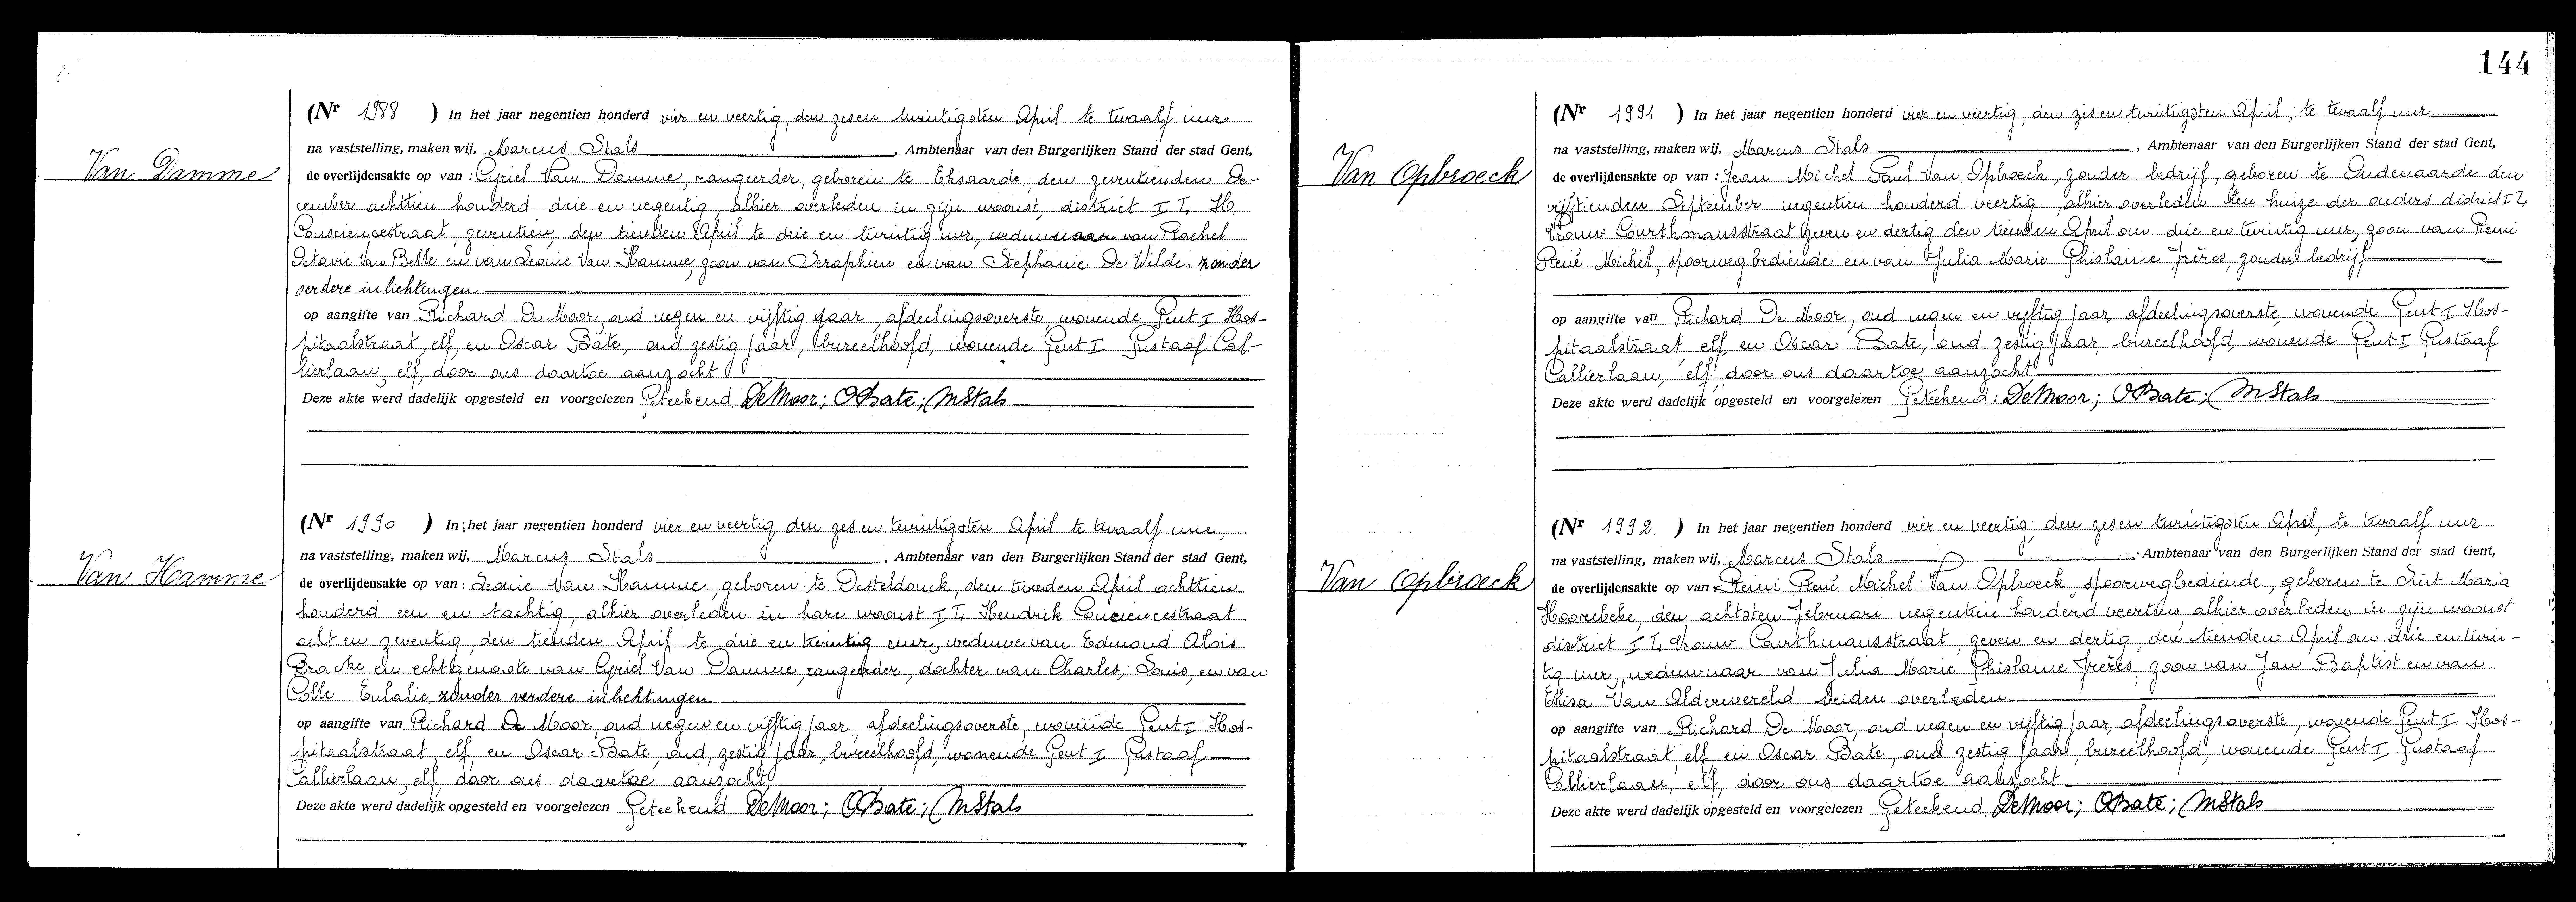 144
Van Damme
(Nr 1988 ) In het jaar negentien honderd vier en veertig, den zes en twintigsten April te twaalf ure
na vaststelling, maken wij, Marcus Stals, Ambtenaar van den Burgerlijken Stand der stad Gent,
de overlijdensakte op van : Cyriel Van Damme, rangeerder, geboren te Eksaarde, den zeventienden De-
cember achttien honderd drie en negentig, alhier overleden in zijn woonst, district I L H.
Consciencestraat, zeventien, den tienden April te drie en twintig uur, weduwnaar van Rachel
Octavie Van Belle en van Leonie Van Hamme, zoon van Seraphien en van Stephanie De Wilde. zonder
verdere inlichtingen
op aangifte van Richard De Moor, oud negen en vijftig jaar, afdeelingsoverste, wonende Gent I Hos-
pitaalstraat, elf, en Oscar Bate, oud zestig jaar, bureelhoofd, wonende Gent I Gustaaf Cal-
lierlaan, elf, door ons daartoe aanzocht
Deze akte werd dadelijk opgesteld en voorgelezen Geteekend DeMoor; OBate; MStals
Van Hamme
(Nr 1990 ) In het jaar negentien honderd vier en veertig den zes en twintigsten April te twaalf ure,
na vaststelling, maken wij, Marcus Stals, Ambtenaar van den Burgerlijken Stand der stad Gent,
de overlijdensakte op van : Leonie Van Hamme, geboren te Desteldonck, den tweeden April achttien
honderd een en tachtig, alhier overleden in hare woonst I L Hendrik Conciencestraat
acht en zeventig, den tienden April te drie en twintig uur, weduwe van Edmond Alois
Bracke en echtgenoote van Cyriel Van Damme, rangeerder, dochter van Charles, Louis, en van
Colle Eulalie zonder verdere inlichtingen
op aangifte van Richard De Moor, oud negen en vijftig jaar, afdeelingsoverste, wonende Gent I Hos-
pitaalstraat, elf, en Oscar Bate, oud, zestig jaar, bureelhoofd, wonende Gent I Gustaaf
Callierlaan, elf, door ons daartoe aanzocht,
Deze akte werd dadelijk opgesteld en voorgelezen Geteekend DeMoor; OBate; MStals
Van Opbroeck
(Nr 1991 ) In het jaar negentien honderd vier en veertig, den zes en twintigsten April, te twaalf ure
na vaststelling, maken wij, Marcus Stals, Ambtenaar van den Burgerlijken Stand der stad Gent,
de overlijdensakte op van : Jean Michel Paul Van Opbroeck, zonder bedrijf, geboren te Oudenaarde den
vijftienden September negentien honderd veertig, alhier overleden ten huize der ouders district I L
Vrouw Courthmansstraat zeven en dertig den tienden April om drie en twintig uur, zoon van Remi
René Michel, spoorwegbediende en van Julia Marie Ghislaine Frères, zonder bedrijf
op aangifte van Richard De Moor, oud negen en vijftig jaar, afdeelingsoverste, wonende Gent I Hos-
pitaalstraat, elf, en Oscar Bate, oud zestig jaar, bureelhoofd, wonende Gent I Gustaaf
Callierlaan, elf, door ons daartoe aanzocht
Deze akte werd dadelijk opgesteld en voorgelezen Geteekend : DeMoor; OBate; MStals
Van Opbroeck
(Nr 1992 ) In het jaar negentien honderd vier en veertig, den zes en twintigsten April, te twaalf uur
na vaststelling, maken wij, Marcus Stals, Ambtenaar van den Burgerlijken Stand der stad Gent,
de overlijdensakte op van : Remi René Michel Van Opbroeck, spoorwegbediende, geboren te Sint Maria
Hoorebeke, den achtsten Februari negentien honderd veertien, alhier overleden in zijn woonst
district I L Vrouw Courthmansstraat, zeven en dertig, den tienden April om drie en twin-
tig uur, weduwnaar van Julia Marie Ghislaine Frères, zoon van Jan Baptist en van
Elisa Van Alderwereld beiden overleden
op aangifte van Richard De Moor, oud negen en vijftig jaar, afdeelingsoverste, wonende Gent I Hos-
pitaalstraat, elf en Oscar Bate, oud zestig jaar, bureelhoofd, wonende Gent I Gustaaf
Callierlaan, elf, door ons daartoe aanzocht
Deze akte werd dadelijk opgesteld en voorgelezen Geteekend DeMoor; OBate; MStals